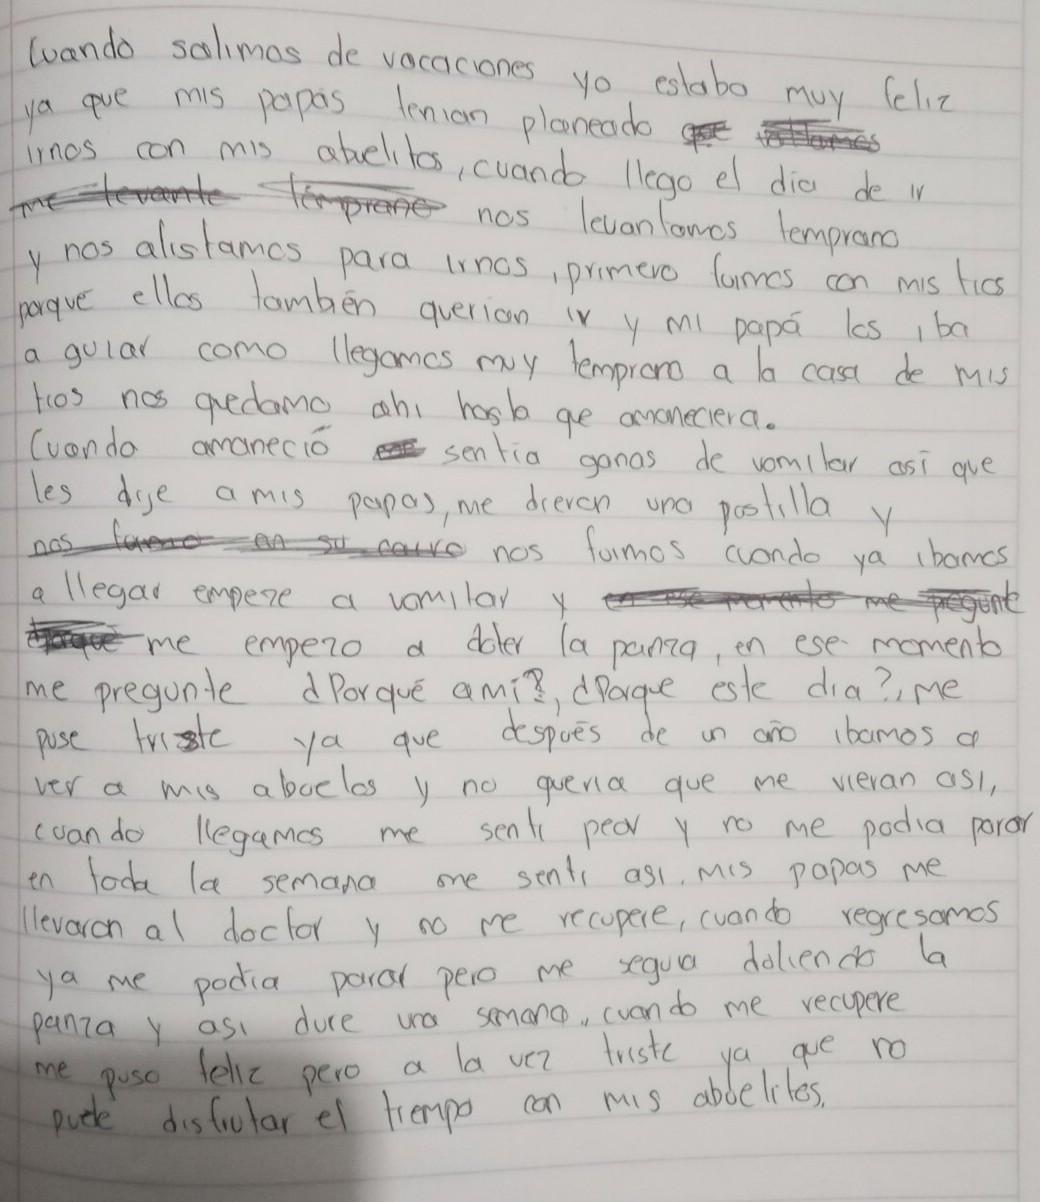 Cuando salimos de vacaciones yo estaba muy feliz
ya que mis papás tenian planeado
irnos con mis abuelitos, cuando llego el dia de ir
me levante temprano nos levantamos temprano
y nos alistamos para irnos, primero fuimos con mis tios
porque ellos también querian ir y mi papá los iba
a guiar como llegamos muy temprano a la casa de mis
tios nos quedamo ahi hasta qe amaneciera.
Cuando amaneció sentia ganas de vomitar así que
les dije a mis papas, me dieron una pastilla y
nos fuimos cuando ya ibamos
a llegar empeze a vomitar y en ese momento me pregunte
porque me empezo a doler la panza, en ese momento
me pregunte ¿Porqué a mi?, ¿Porque este dia?, Me
puse triste ya que después de un año ibamos a
ver a mis abuelos y no queria que me vieran asi,
cuando llegamos me senti peor y no me podia parar
en toda la semana me senti asi. Mis papas me
llevaron al doctor y no me recupere, cuando regresamos
ya me podia parar pero me seguia doliendo la
panza y asi dure una semana, cuando me recupere
me puso feliz pero a la vez triste ya que no
pude disfrutar el tiempo con mis abuelitos.